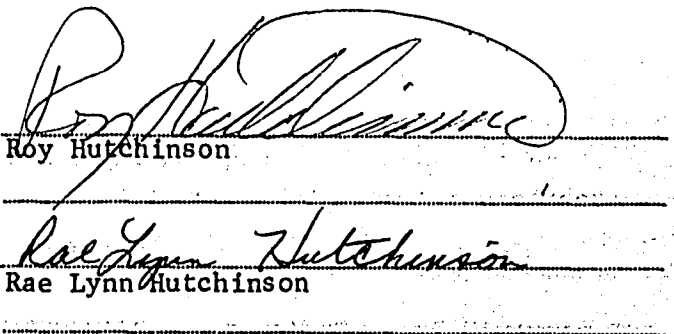 Roy Hutchinson
Roy Hutchinson
Rae Lynn Hutchinson
Rae Lynn Hutchinson